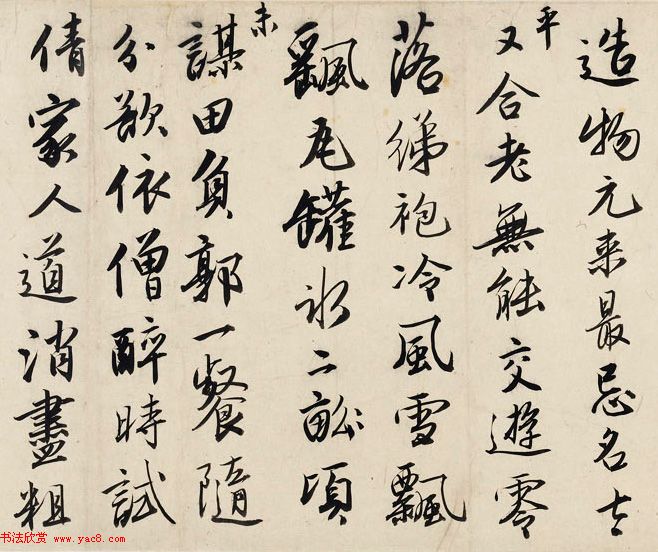 造物元来最忌名太
平又合老無能交遊零
落綈袍冷風雪飄
颻瓦罐冰二畝頃
未謀田負郭一餐隨
分欲依僧醉時試
倩家人道消盡粗
书法欣赏 www.yac8.com